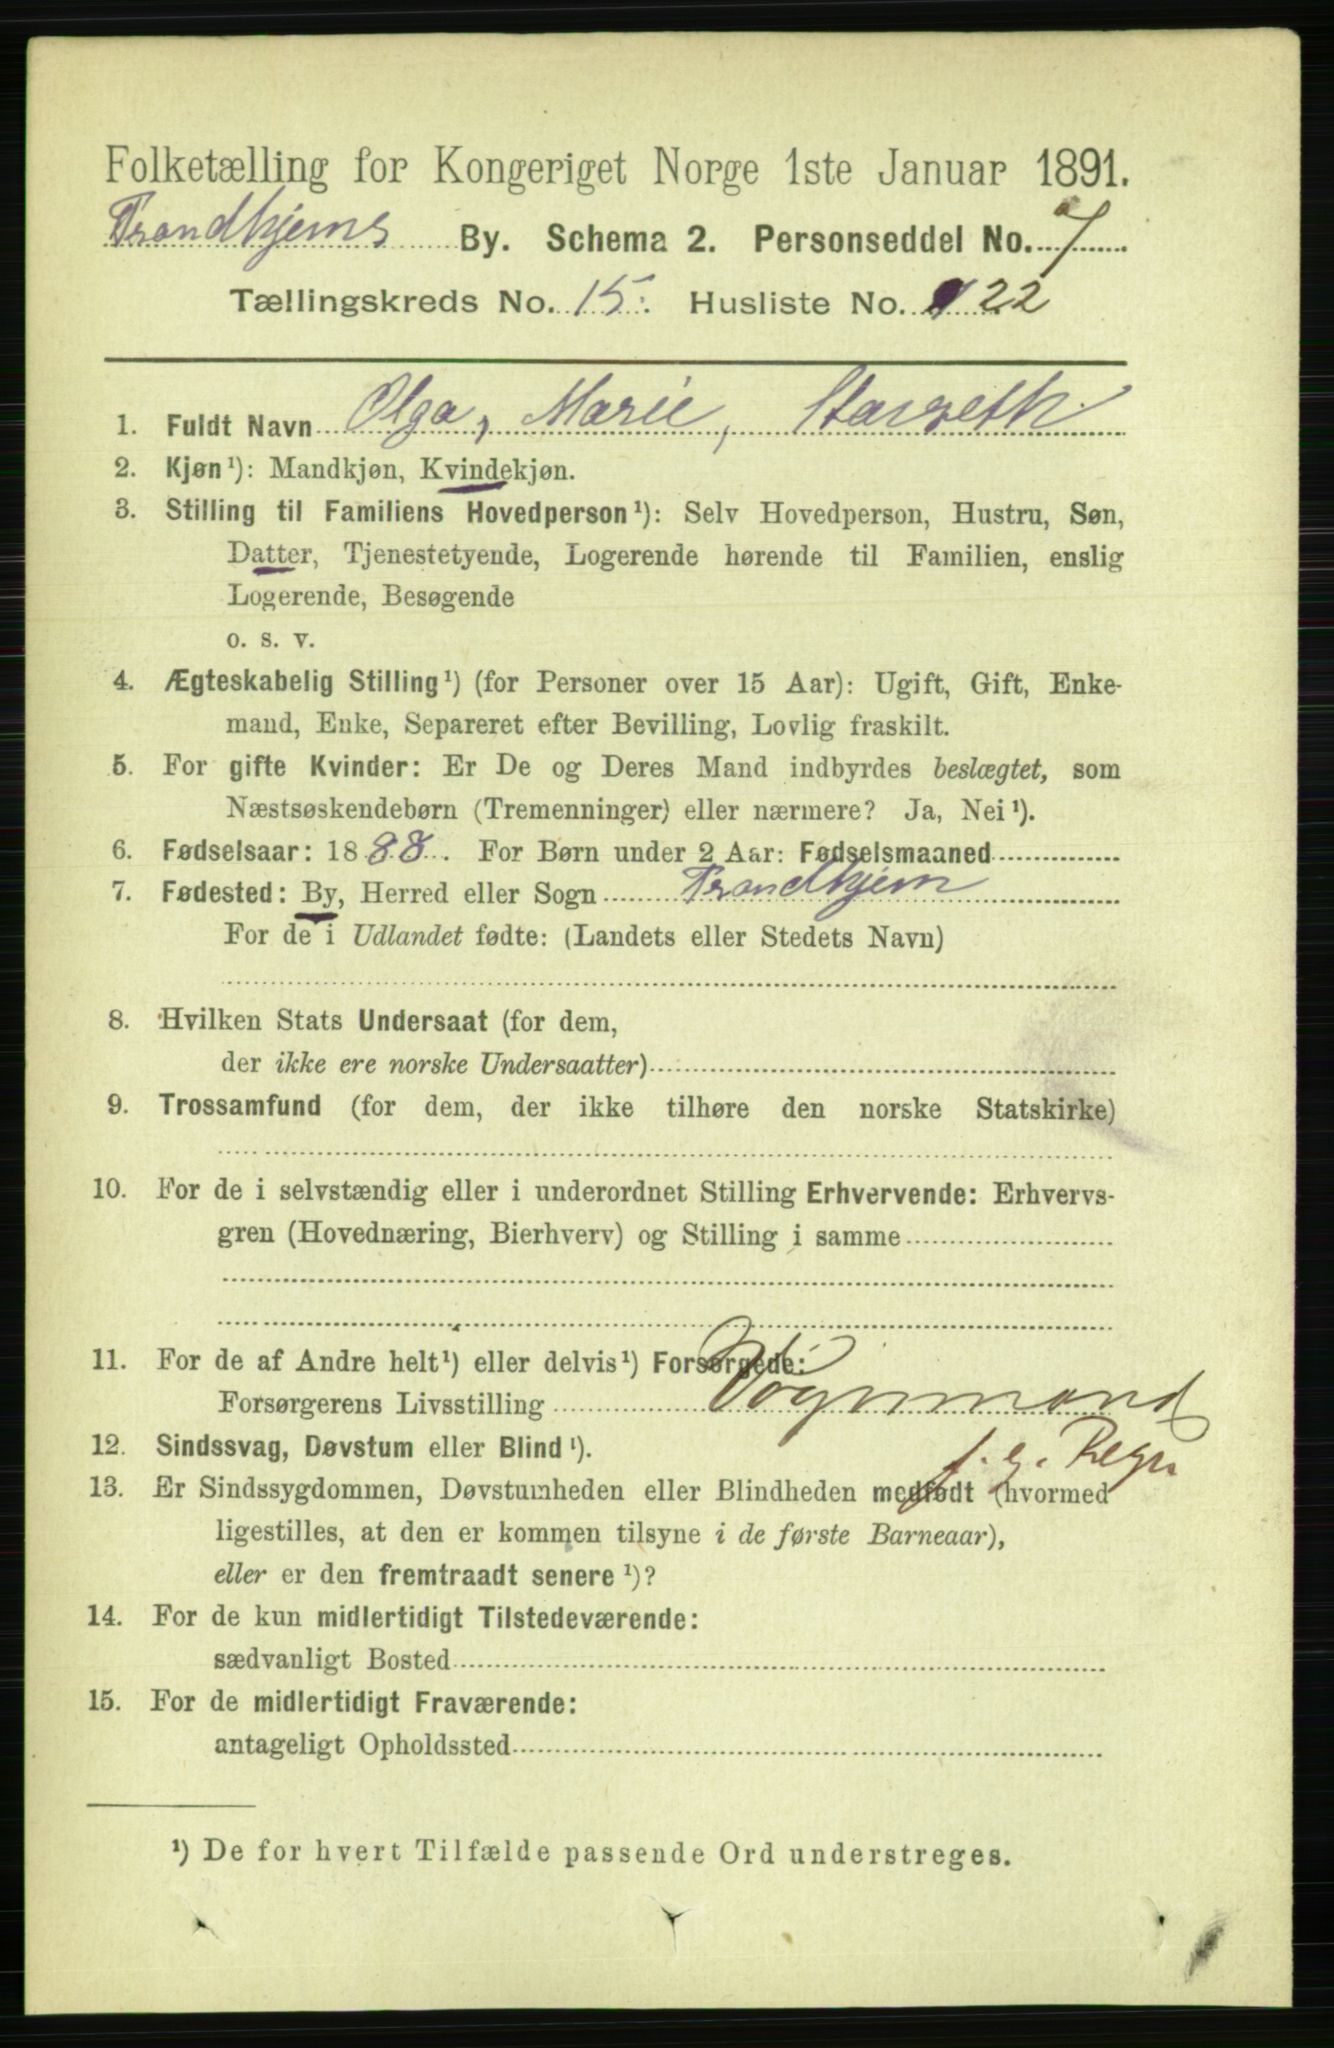 Folketælling for Kongeriget Norge 1ste Januar 1891.
Trondhjems By. Schema 2. Personseddel No. 7
Tællingskreds No. 15. Husliste No. 22
1. Fuldt Navn Olga, Marie,
2. Kjøn ¹): Mandkjøn, Kvindekjøn.
3. Stilling til Familiens Hovedperson ¹): Selv Hovedperson, Hustru, Søn,
Datter, Tjenestetyende, Logerende hørende til Familien, enslig
Logerende, Besøgende
o. s. v.
4. Ægteskabelig Stilling ¹) (for Personer over 15 Aar): Ugift, Gift, Enke-
mand, Enke, Separeret efter Bevilling, Lovlig fraskilt.
5. For gifte Kvinder: Er De og Deres Mand indbyrdes beslægtet, som
Næstsøskendebørn (Tremenninger) eller nærmere? Ja, Nei ¹).
6. Fødselsaar: 1888. For Børn under 2 Aar: Fødselsmaaned
7. Fødested: By, Herred eller Sogn Trondhjem
For de i Udlandet fødte: (Landets eller Stedets Navn)
8. Hvilken Stats Undersaat (for dem,
der ikke ere norske Undersaatter)
9. Trossamfund (for dem, der ikke tilhøre den norske Statskirke)
10. For de i selvstændig eller i underordnet Stilling Erhvervende: Erhvervs-
gren (Hovednæring, Bierhverv) og Stilling i samme
11. For de af Andre helt ¹) eller delvis ¹) Forsørgede:
Forsørgerens Livsstilling Vognmand
f. e. Regn
12. Sindssvag, Døvstum eller Blind ¹).
13. Er Sindssygdommen, Døvstumheden eller Blindheden medfødt (hvormed
ligestilles, at den er kommen tilsyne i de første Barneaar),
eller er den fremtraadt senere ¹)?
14. For de kun midlertidigt Tilstedeværende:
sædvanligt Bosted
15. For de midlertidigt Fraværende:
antageligt Opholdssted
¹) De for hvert Tilfælde passende Ord understreges.